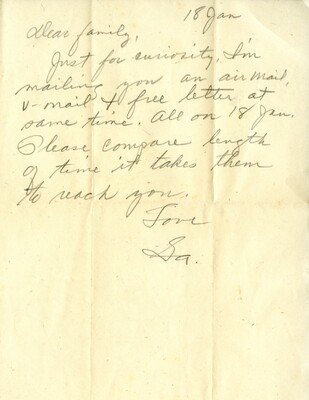 18 Jan
Dear family,
Just for curiosity, I'm
mailing you an air mail,
V-mail & free letter at
same time. All on 18 Jan.
Please compare length
of time it takes them
to reach you.
Love